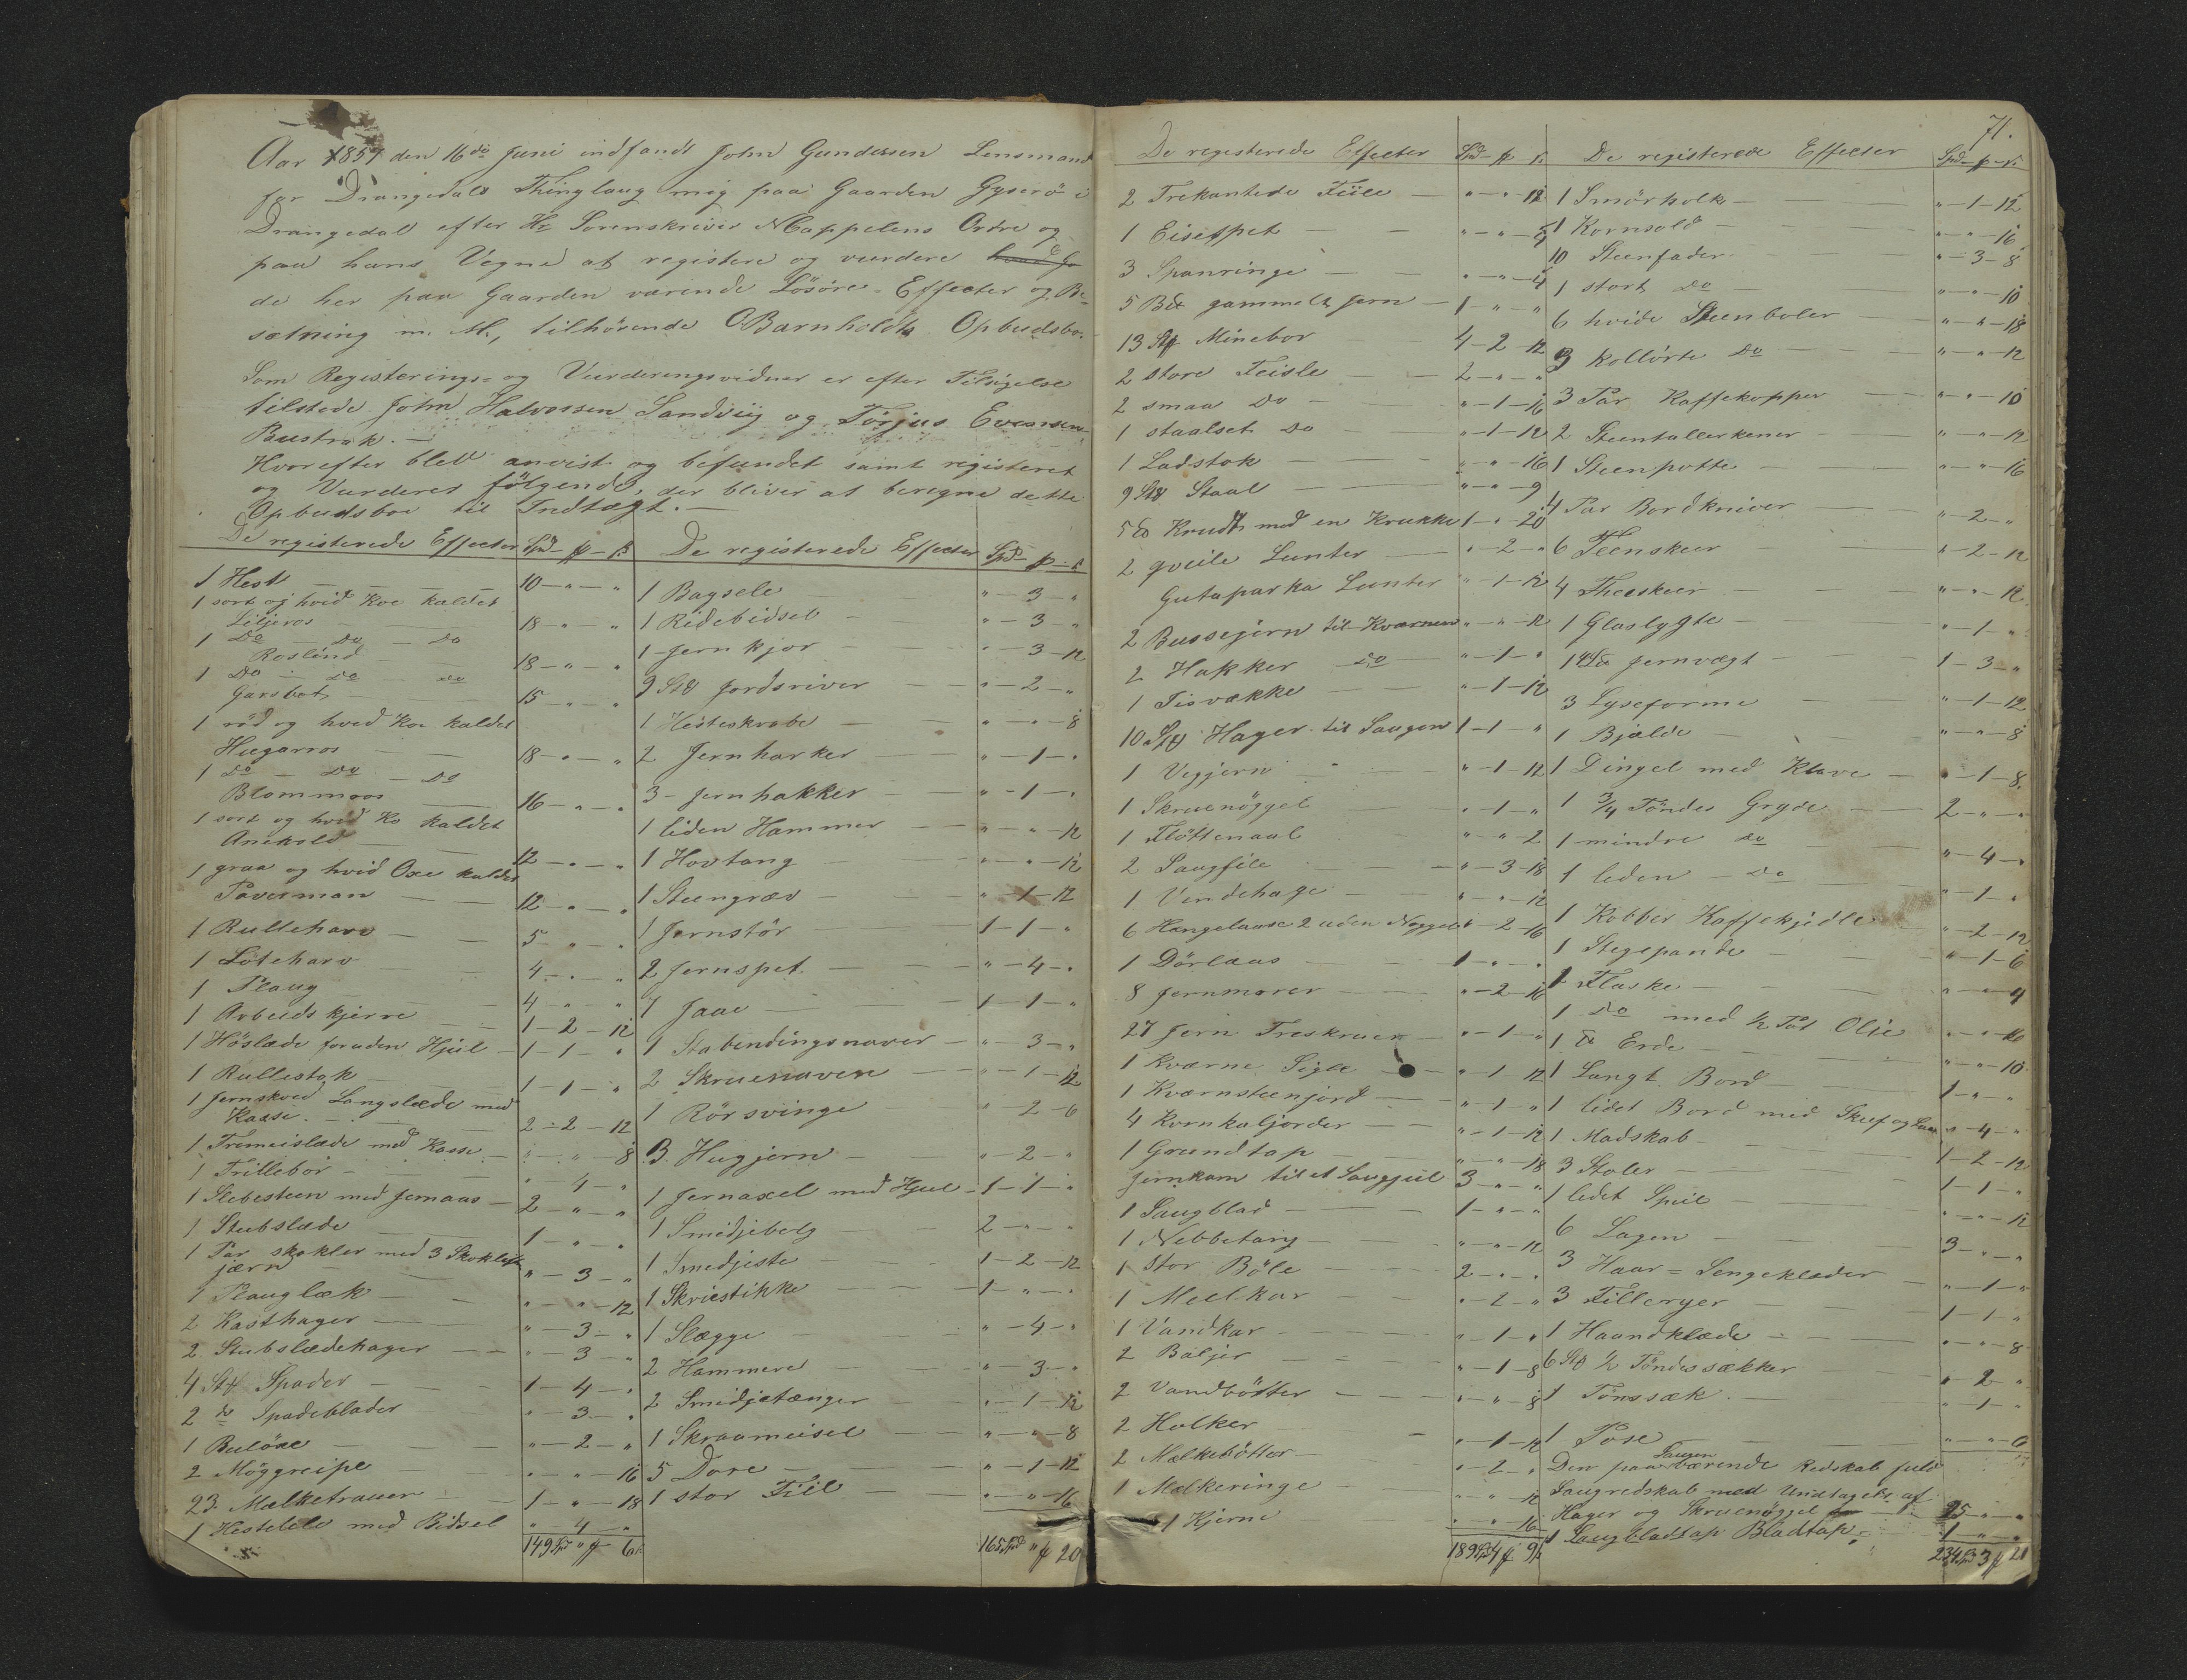 Aar 1857 den 16de Juni indfandt John Gundersen Lensmand
for Drangedals Thinglaug mig paa Gaarden Gyserö i
Drangedal efter Hr Sorenskriver NCappelens Ordre og
paa hans Vegne at registere og vurdere
de her paa Gaarden værende Lösöre-Effecter og Be-
sætning m. M., tilhörende OBarnholdts Opbudsbo.
Som Registerings- og Vurderingsvidner er efter Tilsigelse
tilstede John Halvorsen Sandviig og Törjus Evensen
Bustrak.—
Hvorefter blev anvist og befundet samt registeret
og Vurderet fölgende, der bliver at beregne dette
Opbudsboe til Indtægt.—
De registerede Effecter Spd — ß
1 Hest 10 - " - "
1 sort og hvid Koe kaldet
Liljeros 18 - " - "
1 Do — Do — Do
Roslind 18 - " - "
1 Do — Do — Do
Garsbot 15 - " - "
1 röd og hvid Koe kaldet
Hugaros 18 - " - "
1 Do — Do — Do
Blommros 16 - " - "
1 sort og hvid Ko kaldet
12 - " - "
1 graa og hvid Oxe kaldet
12 - " - "
1 Rulleharv 5 - " - "
1 Löteharv 4 - " - "
1 Plaug 4 - " - "
1 Arbeidskjerre 1 - 2 - 12
1 Höslæde foruden Hjul 1 - 1 - "
1 Rullestok 1 - 1 - "
1 Jernskoed Langslæde med
Kasse 2 - 2 - 12
1 Tremeislæde med Kasse " - " - 8
1 Trillebör " - 4 - "
1 Slebesteen med Jernaas 2 - " - "
1 Stubslæde 1 - " - "
1 Par skokler med 3
jærn " - 3 - "
1 Plauglæk " - " - 12
2 Kasthager " - 3 - "
2 Stubslædehager " - 3 - "
4 Stk Spader 1 - 4 - "
2 do Spadeblader " - 3 - "
1 Bulöxe " - 2 - "
2 Möggreipe " - " - 16
23 Melketrauer 1 - " - 18
1 Hestelele med Bidsel " - 4 - "
149 Spd " 6 ß
De registerede Effecter Spd — ß
1 Bagsele " - 3 - "
1 Ridebidsel " - 3 - "
1 Jern kjor " - 3 - 12
9 Stk Jordsriver " - 2 - "
1 Hesteskrabe " - " - 8
2 Jernharker " - 1 - "
3 Jernhakker " - 1 - "
1 liden Hammer " - " - 12
1 Hovtang " - " - 12
1 Steengrev " - 1 - 12
1 Jernstör 1 - 1 - "
2 Jernspet " - 4 - "
7 Jaae 1 - 1 - "
1 Stabendingsnaver " - 3 - "
2 Skruenaven " - 1 - 12
1 Rörsvinge " - 2 - 6
3 Hugjern " - 2 - "
1 Jernaxel med Hjul 1 - 1 - "
1 Smidjebelg 2 - " - "
1 Smedjeste 1 - 2 - 12
1 Skruestikke 1 - " - "
1 Slægge " - 4 - "
2 Hammere " - 3 - "
2 Smidjetænger " - 1 - 12
1 Skraameisel " - " - 8
5 Dore " - 1 - 12
1 stor Fiil " - " - 16
165 Spd " 20
71.
De registerede Effecter Spd — ß
2 Trekantede Fiile " - " - 12
1 Eisespet
3 Spanringe " - " - 4
5 gammelt Jern 1 - " - "
13 Stk Minebor 4 - 2 - 12
2 store Feisle 2 - " - "
2 smaa Do " - 1 - 16
1 staalset Do " - 1 - 12
1 Ladstok " - " - 16
9 Staal " - " - 9
5 Krudt med en Krukke 1 - " - 20
2 qveile Lunter " - 2 - "
Gutaparka Lunter " - 1 - 12
2 Bussejern til Kværnen " - " - 12
2 Hakker do " - 1 - "
1 Tisvække " - 1 - 12
10 Stk Hager til Saugen 1 - 1 - "
1 Vegjern " - 1 - 12
1 Skruenöggel " - 1 - "
1 Flöttenaal " - " - 2
2 Saugfile " - 3 - 18
1 Vendehage " - " - 12
6 Hængelaase 2 uden Nöggel 1 - 2 - 16
1 Dörlaas 1 - " - "
8 Jernmorer " - 2 - 16
27 Jern Treskruer " - 1 - "
1 Kværne Sigle " - 1 - 12
1 Kværnsteenjord " - 1 - "
4 Kvernkaljorder " - 1 - 12
1 Grundtap " - " - 18
Jernkam til et Saugjul 3 - " - "
1 Saugblad 1 - " - "
1 Nebbetang " - " - 12
1 Stor Böle 2 - " - "
1 Meelkar " - 2 - "
1 Vandkar " - 1 - "
2 Baljer " - 1 - 8
2 Vandbötter " - " - 8
2 Holker " - 1 - 12
2 Melkebötter " - 2 - "
1 Melkeringe " - " - 12
1 Kjerne " - " - 16
189 Spd 4 9 ß
De registerede Effecter Spd — ß
1 Smörholk " - 1 - 12
1 Kornsold " - " - 16
10 Steenfader " - 3 - 8
1 stort Do " - " - 10
6 hvide Steenboler " - " - 18
3 kollörte Do " - " - 12
3 Par Kaffekopper " - " - 10
2 Steentallerkener " - " - 12
1 Steenpotte " - " - 16
4 Par Bordkniver " - 2 - "
6 Teenskeer " - 2 - 12
4 Theeskeer " - " - 12
1 Glaslygte " - 1 - "
1 Jernvægt 1 - 3 - "
3 Lyseforme " - 1 - 12
1 Bjælde " - " - 8
1 Dingel med Klave " - 1 - 8
1 3/4 Töndes Gryde 2 - " - "
1 mindre do " - 4 - "
1 leden Do " - 1 - "
1 Kobber Kaffekjedle " - 2 - 12
1 Stegepande " - 1 - 6
1 Flaske " - " - 4
1 Do med 1/2 Pot Olie " - " - 16
1 Erde " - " - 10
1 Langt Bord 1 - " - "
1 lidet Bord med Skuf og Laas " - 4 - "
1 Madskab 1 - 2 - 12
3 Stoler 1 - 1 - "
1 ledet Speil " - " - 12
6 Lagen 3 - " - "
3 Haar-Sengeklæder " - 1 - "
3 Filleryer 1 - 1 - "
1 Haandklæde " - " - 8
6 Stk 1/2 Töndessækker " - 2 - "
1 Tönssæk " - 1 - "
1 Pose " - " - 6
Den paa Saugen værende Redskab fuld
Saugredskab med Undtagelse af
Hager og Skruenöggel 25 - " - "
1 Saugbladtap Bladtap. 1 - " - "
234 Spd 3 21